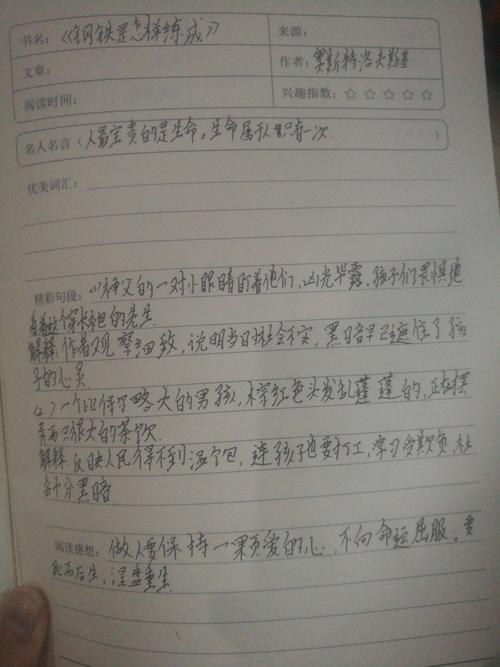 书名：《钢铁是怎样练成》
来源：
文章：
作者：奥斯特洛夫斯基
阅读时间：
兴趣指数：☆ ☆ ☆ ☆ ☆
名人名言（人最宝贵的是生命。生命属于人只有一次 ）
优美词汇：
精彩句段：(1)神父的一对小眼睛盯着他们，凶光毕露，孩子们畏惧地
看着这个穿长袍的先生
解释：作者观察细致，说明当日社会不安，黑暗早已遮住了孩
子的心灵
(2)一个比保尔略大的男孩，棕红色头发乱蓬蓬的，正在摆
弄两只很大的茶炊
解释：反映人民得不到温饱，连孩子也要打工，学习受欺负 社
会十分黑暗
阅读感想：做人要保持一颗爱的心，不向命运屈服。要
死而后生，涅盘重生